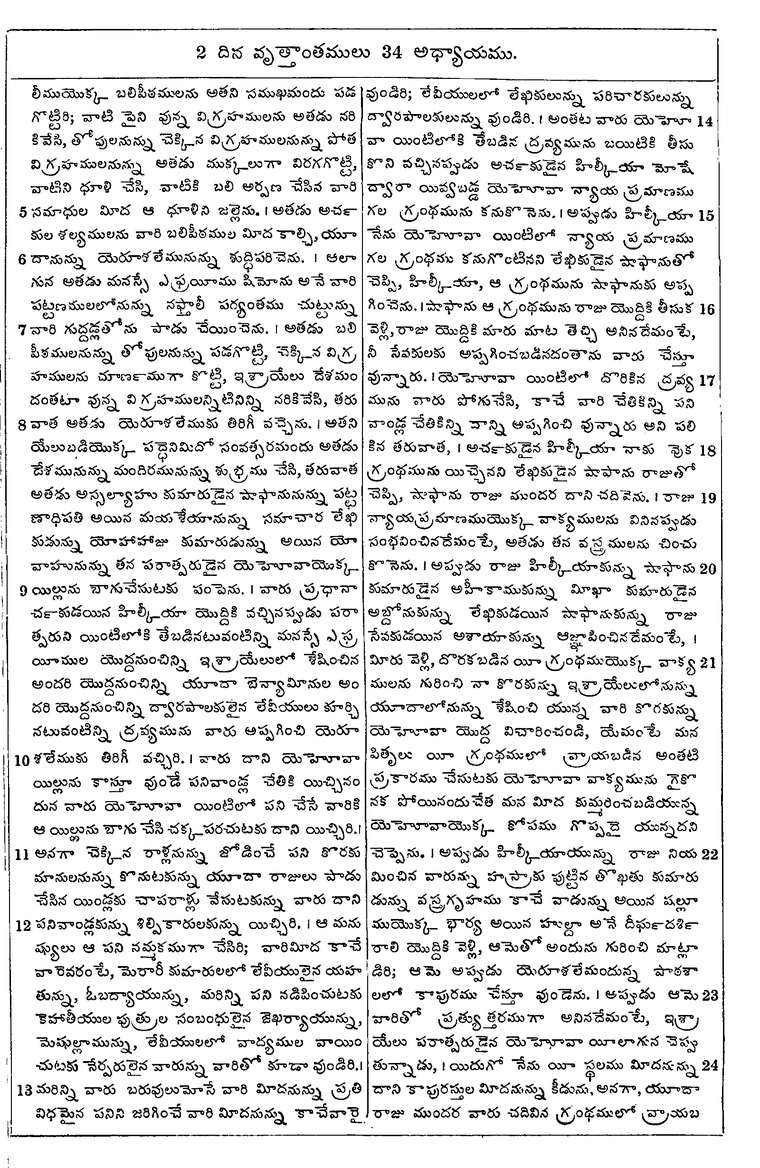 2 దిన వృత్తాంతములు 34 అధ్యాయము.
లీముయొక్క బలిపీఠములను అతని సముఖమందు పడ
గొట్టిరి; వాటి పైని వున్న విగ్రహములను అతడు నరి
కివేసి, తోపులనున్ను చెక్కిన విగ్రహములనున్ను పోత
విగ్రహములనున్ను అతడు ముక్కలుగా విరగగొట్టి,
వాటిని ధూళి చేసి, వాటికి బలి అర్పణ చేసిన వారి
5 సమాధుల మీద ఆ ధూళిని జల్లెను. । అతడు అర్చ
కుల శల్యములను వారి బలిపీఠముల మీద కాల్చి, యూ
6 దానున్ను యెరూశలేమునున్ను శుద్ధిపరిచెను. । ఆలా
గున అతడు మనస్సే ఎఫ్రయీము షిమోను అనే వారి
పట్టణములలోనున్ను నఫ్తాలీ పర్యంతము చుట్టున్ను
7 వారి గుద్దడ్లతోను పాడు చేయించెను. । అతడు బలి
పీఠములనున్ను తోపులనున్ను పడగొట్టి, చెక్కిన విగ్ర
హములను చూర్ణముగా కొట్టి, ఇశ్రాయేలు దేశమం
దంతటా వున్న విగ్రహములన్నిటినిన్ని నరికివేసి, తరు
8 వాత అతడు యెరూశలేముకు తిరిగీ వచ్చెను. । అతని
యేలుబడియొక్క పద్దెనిమిదో సంవత్సరమందు అతడు
దేశమునున్ను మందిరమునున్ను శుభ్రము చేసి, తరువాత
అతడు అస్సల్యాహు కుమారుడైన షాఫానునున్ను పట్ట
ణాధిపతి అయిన మయశేయానున్ను సమాచార లేఖి
కుడున్ను యోహాహాజు కుమారుడున్ను అయిన యో
వాహునున్ను తన పరాత్పరుడైన యెహోవాయొక్క
9 యిల్లును బాగుచేసుటకు పంపెను. । వారు ప్రధానా
ర్చకుడయిన హిల్కీయా యొద్దికి వచ్చినప్పుడు పరా
త్పరుని యింటిలోకి తేబడినటువంటిన్ని మనస్సే ఎఫ్ర
యీముల యొద్దనుంచిన్ని ఇశ్రాయేలులో శేషించిన
అందరి యొద్దనుంచిన్ని యూదా బెన్యామీనుల అం
దరి యొద్దనుంచిన్ని ద్వారపాలకులైన లేవీయులు కూర్చి
నటువంటిన్ని ద్రవ్యమును వారు అప్పగించి యెరూ
10 శలేముకు తిరిగీ వచ్చిరి. । వారు దాని యెహోవా
యిల్లును కాస్తూ వుండే పనివాండ్ల చేతికి యిచ్చినం
దున వారు యెహోవా యింటిలో పని చేసే వారికి
ఆ యిల్లును బాగు చేసి చక్కపరచుటకు దాని యిచ్చిరి. ।
11 అనగా చెక్కిన రాళ్లనున్ను జోడించే పని కొరకు
మానులనున్ను కొనుటకున్ను యూదా రాజులు పాడు
చేసిన యిండ్లకు చాపరాళ్లు వేసుటకున్ను వారు దాని
12 పనివాండ్లకున్ను శిల్పికారులకున్ను యిచ్చిరి. । ఆ మను
ష్యులు ఆ పని నమ్మకముగా చేసిరి; వారిమీద కాచే
వారెవరంటే, మెరారీ కుమారులలో లేవీయులైన యహ
తున్ను, ఓబద్యాయున్ను, మరిన్ని పని నడిపించుటకు
కెహాతీయుల పుత్రుల సంబంధులైన జెఖర్యాయున్ను,
మెషుల్లామున్ను, లేవీయులలో వాద్యముల వాయిం
చుటకు నేర్పరులైన వారున్ను వారితో కూడా వుండిరి. ।
13 మరిన్ని వారు బరువులుమోసే వారి మీదనున్ను ప్రతి
విధమైన పనిని జరిగించే వారి మీదనున్ను కాచేవారై
వుండిరి; లేవీయులలో లేఖికులున్ను పరిచారకులున్ను
ద్వారపాలకులున్ను వుండిరి. । అంతట వారు యెహో 14
వా యింటిలోకి తేబడిన ద్రవ్యమును బయిటికి తీసు
కొని వచ్చినప్పుడు అర్చకుడైన హిల్కీయా మోషే
ద్వారా యివ్వబడ్డ యెహోవా న్యాయ ప్రమాణము
గల గ్రంథమును కనుకొనెను. । అప్పుడు హిల్కీయా 15
నేను యెహోవా యింటిలో న్యాయ ప్రమాణము
గల గ్రంథము కనుగొంటినని లేఖికుడైన షాఫానుతో
చెప్పి, హిల్కీయా, ఆ గ్రంథమును షాఫానుకు అప్ప
గించెను. । షాఫాను ఆ గ్రంథమును రాజు యొద్దికి తీసుక 16
వెళ్లి, రాజు యొద్దికి మారు మాట తెచ్చి అనినదేమంటే,
నీ సేవకులకు అప్పగించబడినదంతాను వారు చేస్తూ
వున్నారు. । యెహోవా యింటిలో దొరికిన ద్రవ్య 17
మును వారు పోగుచేసి, కాచే వారి చేతికిన్ని పని
వాండ్ల చేతికిన్ని దాన్ని అప్పగించి వున్నారు అని పలి
కిన తరువాత, । అర్చకుడైన హిల్కీయా నాకు వుక 18
గ్రంథమును యిచ్చెనని లేఖికుడైన షాఫాను రాజుతో
చెప్పి, షాఫాను రాజు ముందర దాని చదివెను. । రాజు 19
న్యాయప్రమాణముయొక్క వాక్యములను వినినప్పుడు
సంభవించినదేమంటే, అతడు తన వస్త్రములను చించు
కొనెను. । అప్పుడు రాజు హిల్కీయాకున్ను షాఫాను 20
కుమారుడైన అహీకాముకున్ను మీఖా కుమారుడైన
అబ్దోనుకున్ను లేఖికుడయిన షాఫానుకున్ను రాజు
సేవకుడయిన అశాయాకున్ను ఆజ్ఞాపించినదేమంటే, ।
మీరు వెళ్లి, దొరకబడిన యీ గ్రంథముయొక్క వాక్య 21
ములను గురించి నా కొరకున్ను ఇశ్రాయేలులోనున్ను
యూదాలోనున్ను శేషించి యున్న వారి కొరకున్ను
యెహోవా యొద్ద విచారించండి, యేమంటే మన
పితృలు యీ గ్రంథములో వ్రాయబడిన అంతటి
ప్రకారము చేసుటకు యెహోవా వాక్యమును గైకొ
నక పోయినందుచేత మన మీద కుమ్మరించబడియున్న
యెహోవాయొక్క కోపము గొప్పదై యున్నదని
చెప్పెను. । అప్పుడు హిల్కీయాయున్ను రాజు నియ 22
మించిన వారున్ను హస్రాకు పుట్టిన తోఖతు కుమారు
డున్ను వస్త్రగృహము కాచే వాడున్ను అయిన షల్లూ
ముయొక్క భార్య అయిన హుల్దా అనే దీర్ఘదర్శి
రాలి యొద్దికి వెళ్లి, ఆమెతో అందును గురించి మాట్లా
డిరి; ఆమె అప్పుడు యెరూశలేమందున్న పాఠశా
లలో కాపురము చేస్తూ వుండెను. । అప్పుడు ఆమె 23
వారితో ప్రత్యుత్తరముగా అనినదేమంటే, ఇశ్రా
యేలు పరాత్పరుడైన యెహోవా యీలాగున చెప్పు
తున్నాడు, । యిదుగో నేను యీ స్థలము మీదనున్ను 24
దాని కాపురస్తుల మీదనున్ను కీడును, అనగా, యూదా
రాజు ముందర వారు చదివిన గ్రంథములో వ్రాయబ